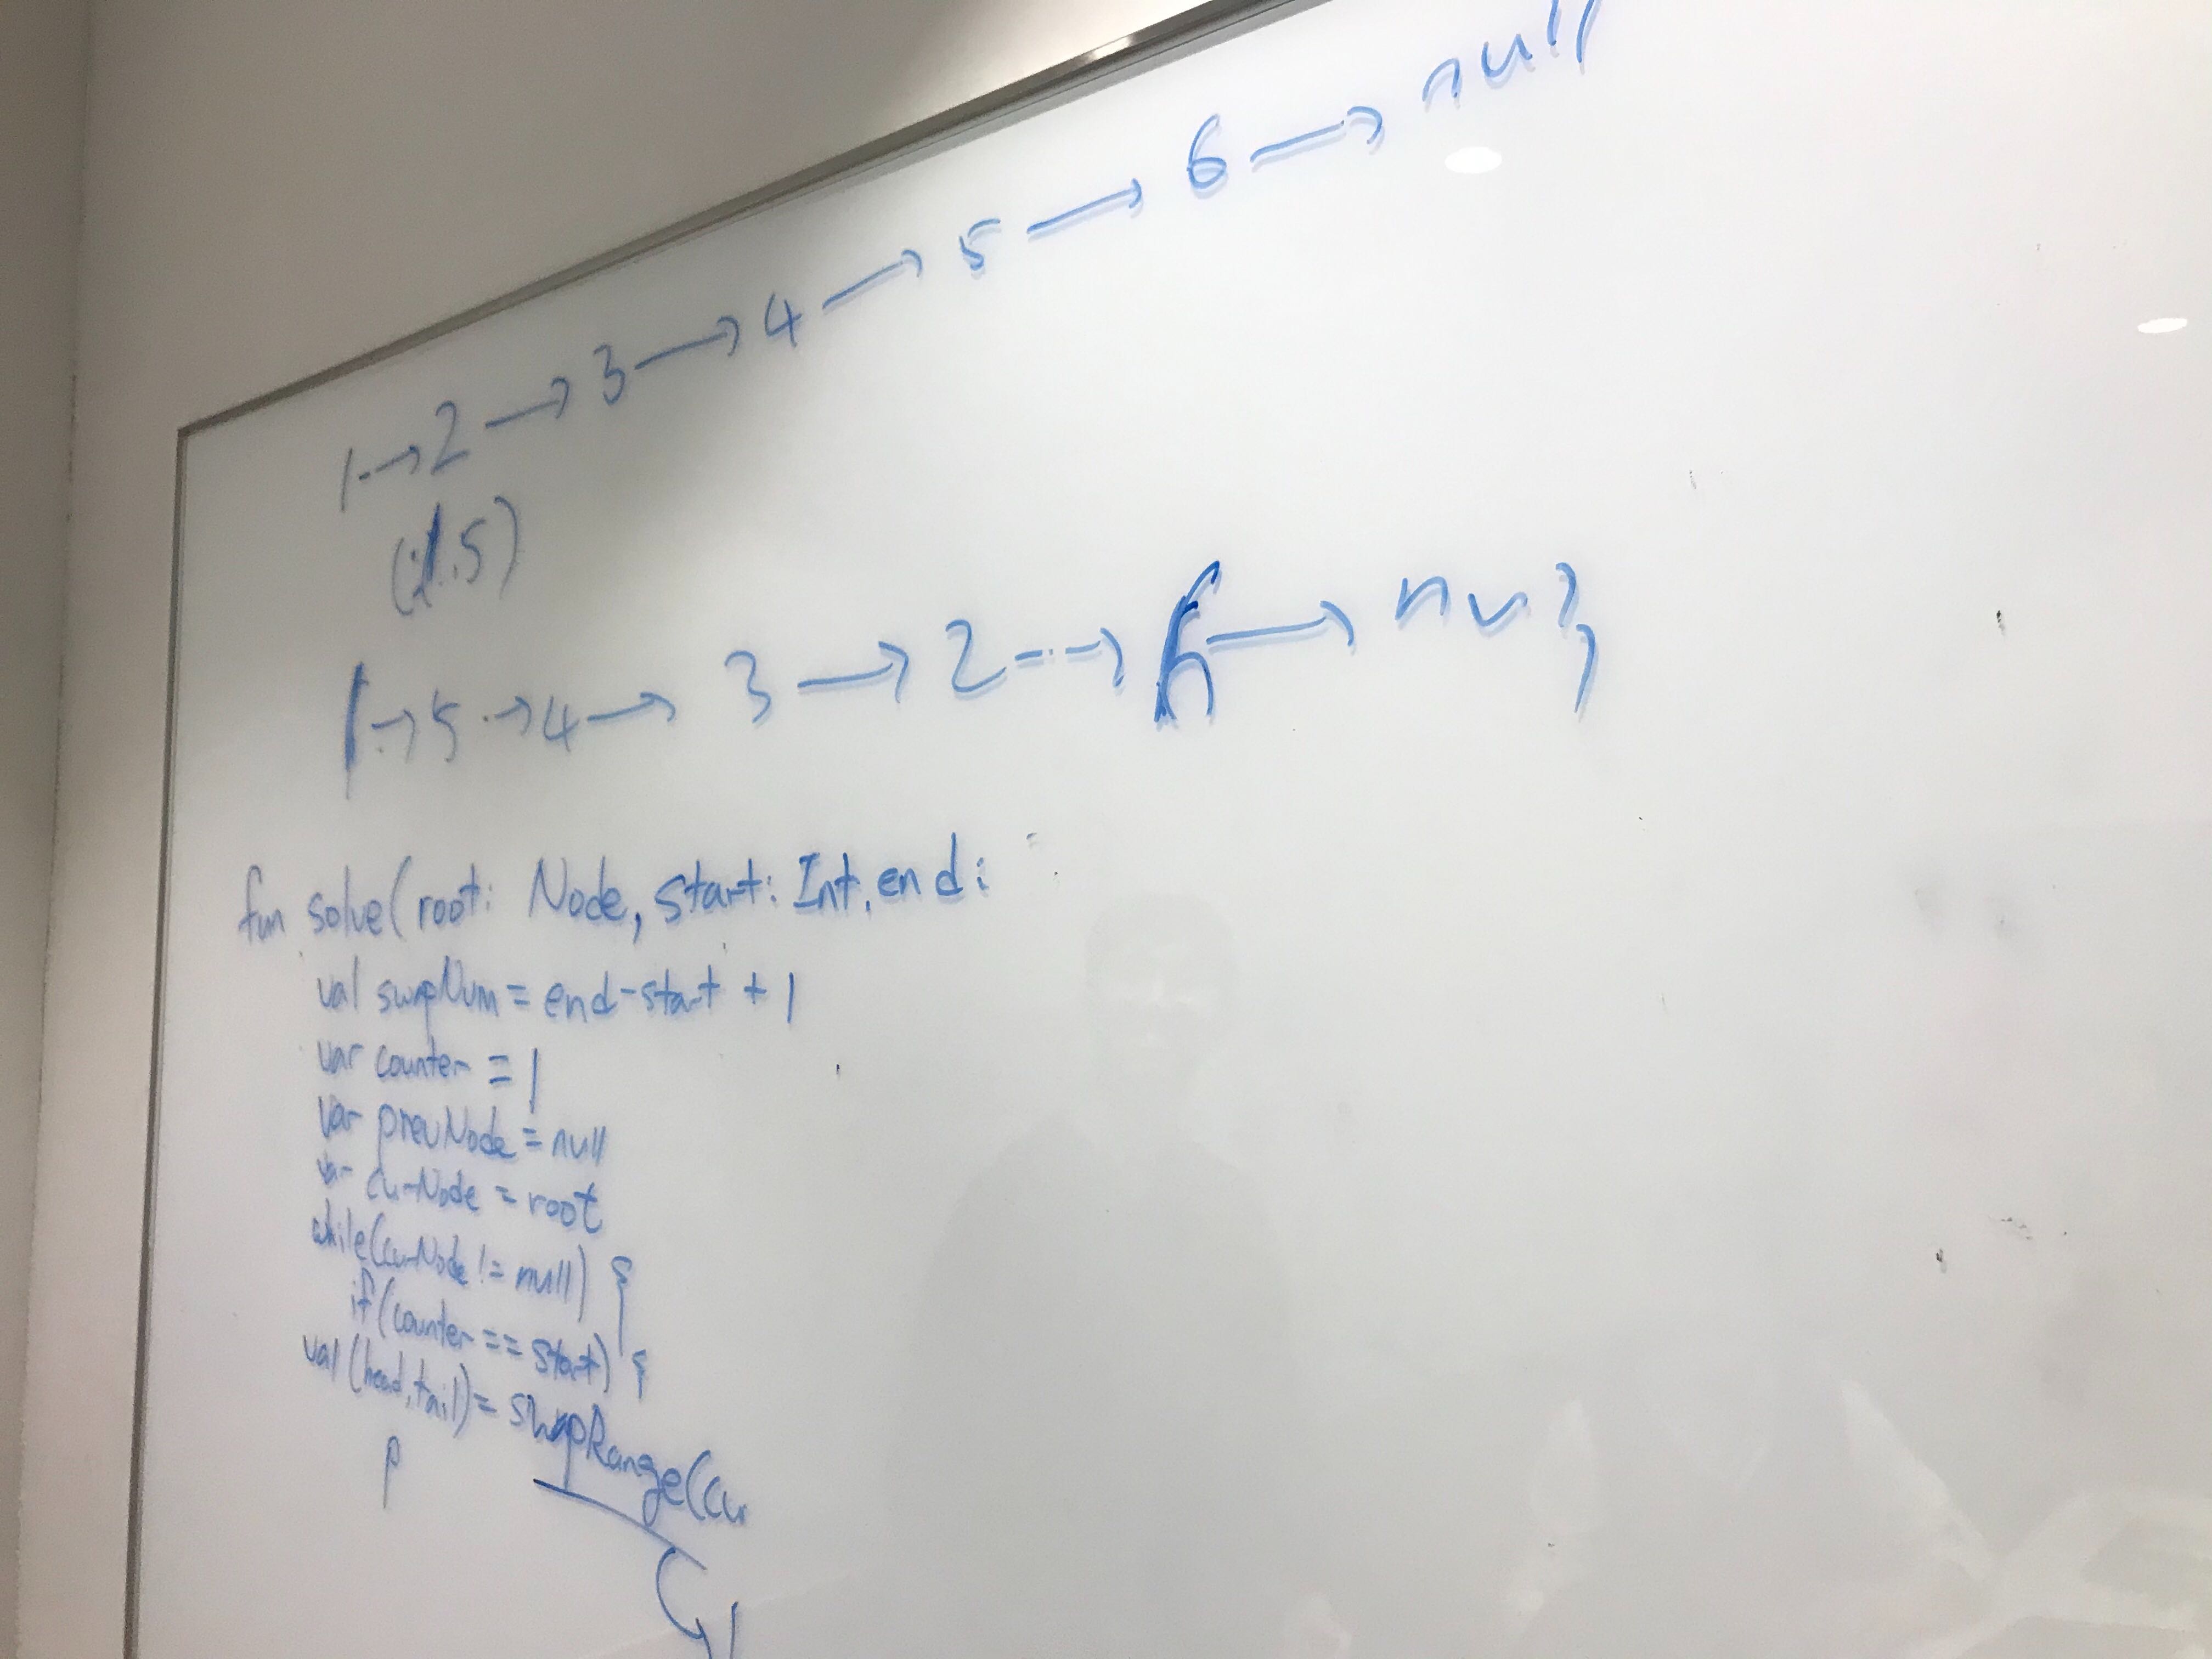 1 → 2 → 3 → 4 → 5 → 6 → null
1 → 5 → 4 → 3 → 2 → 6 →
fun solve(root: Node, start: Int, end:
val swapNum = end - start + 1
var counter = 1
var prevNode = null
var curNode = root
while(curNode != null) {
if(counter == start) {
val (head, tail) = swapRange(cu
p